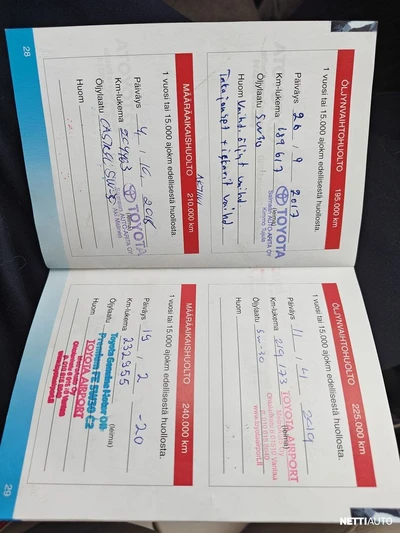 ÖLJYNVAIHTOHUOLTO 195.000 km
1 vuosi tai 15.000 ajokm edellisestä huollosta.
Päiväys 28 . 9 2017
Km-lukema
Öljylaatu 5w30
(leima)
TOYOTA
AUTO-ARITA OY
Huom
MÄÄRÄAIKAISHUOLTO 210.000 km
1 vuosi tai 15.000 ajokm edellisestä huollosta.
Päiväys
Km-lukema
Öljylaatu CASTROL 5W30
TOYOTA
AUTO-ARITA OY
Huom
28
ÖLJYNVAIHTOHUOLTO 225.000 km
1 vuosi tai 15.000 ajokm edellisestä huollosta.
Päiväys 11 . 4 2019
Km-lukema 219 133
Öljylaatu 5w-30
(leima)
TOYOTA AIRPORT
www.toyotaairport.fi
Huom
MÄÄRÄAIKAISHUOLTO 240.000 km
1 vuosi tai 15.000 ajokm edellisestä huollosta.
Päiväys 19 . 2 -20
Km-lukema 232955
Öljylaatu
(leima)
Toyota Genuine Motor Oil
Premium FE 5W30 C2
TOYOTA AIRPORT
Huom
29
NETTIAUTO